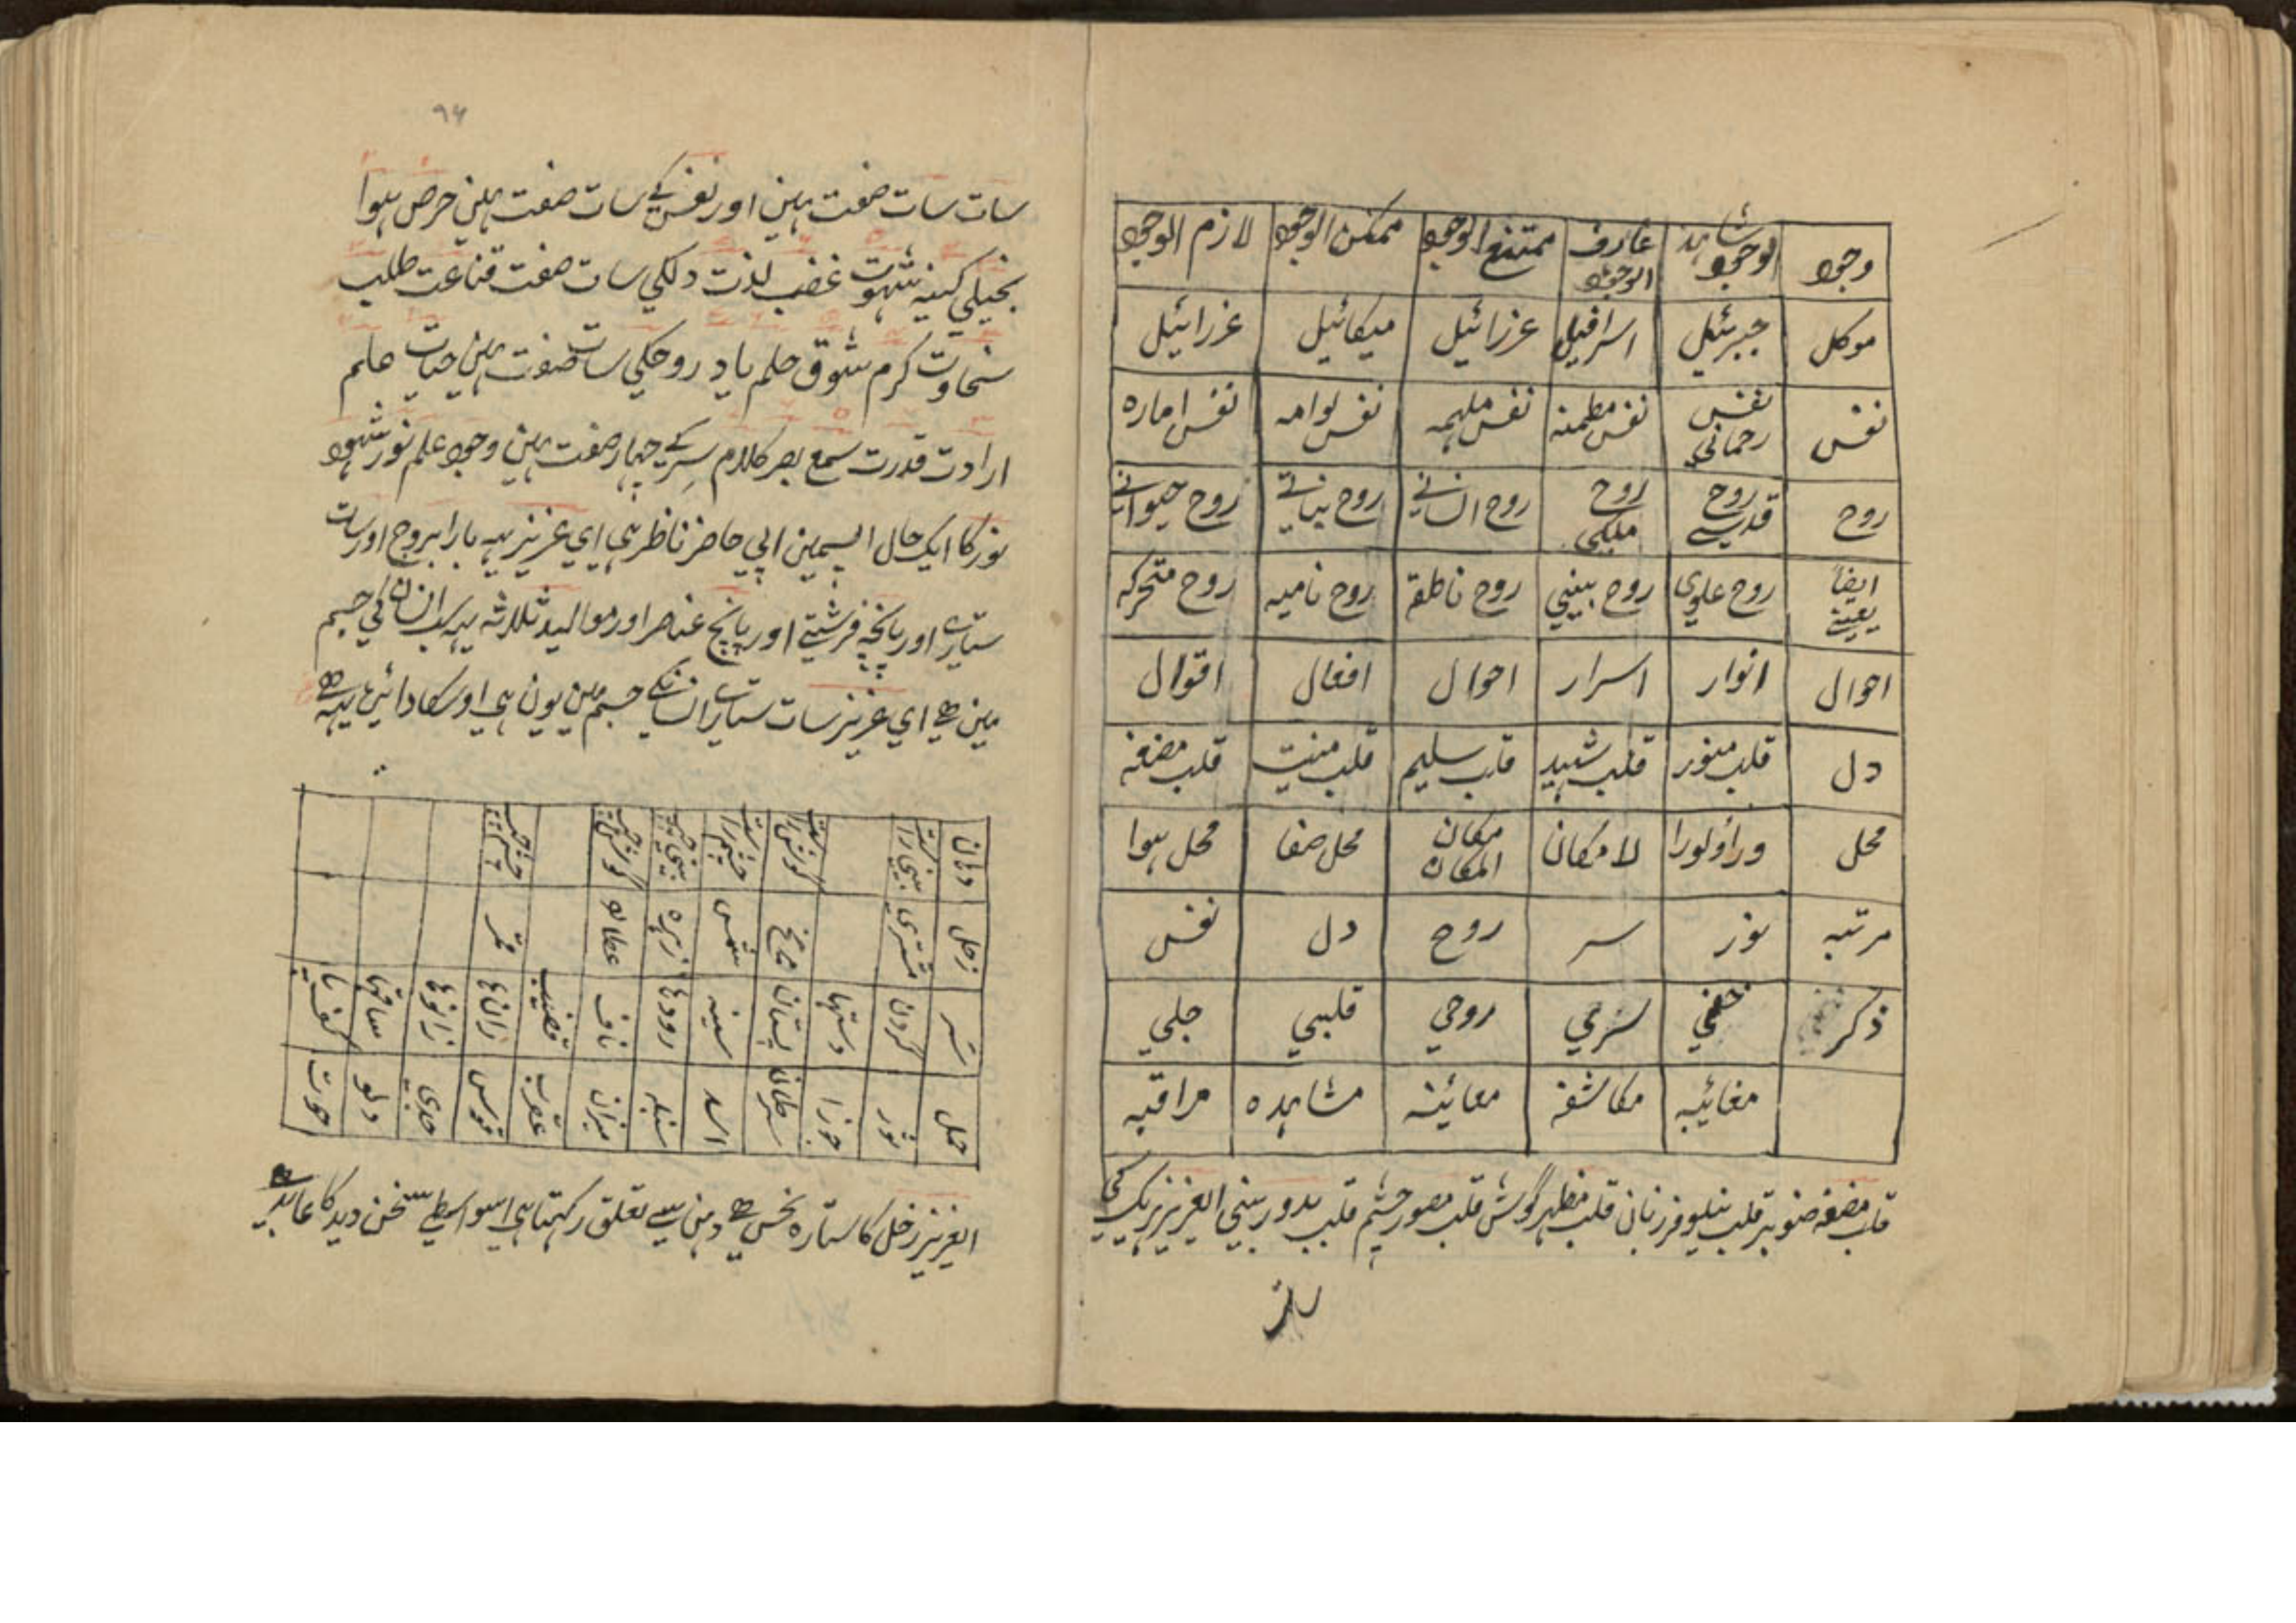 وجود شاہد الوجود عارف الوجود ممتنع الوجود ممکن الوجود لازم الوجود
موکل جبرئیل اسرافیل عزرائیل میکائیل عزرائیل
نفس نفس رحمانی نفس مطمئنہ نفس ملہمہ نفس لوامہ نفس امارہ
روح روح قدسی روح ملکی روح انسانی روح نباتی روح حیوانی
ایضاً یعنے روح علوی روح روح ناطقہ روح نامیہ روح متحرکہ
احوال انوار اسرار احوال افعال اقوال
دل قلب منور قلب شہید قلب سلیم قلب منیت قلب مضغہ
محل وراؤلورا لامکان مکان المکان محل صفا محل ہوا
مرتبہ نور سر روح دل نفس
ذکر خفی سری روحی قلبی جلی
مغائبہ مکاشفہ معائنہ مشاہدہ مراقبہ
قلب مضغہ صنوبر قلب نیلوفر زبان قلب مظہر گوش قلب مصور چشم قلب مدور بینی العزیز ہریک کی
سات
۹۴
سات سات صفت ہین اور نفس کے سات صفت ہین حرص ہوا
بخیلی کینہ شہوت غضب لذت دلکی سات صفت قناعت طلب
سخاوت کرم شوق حلم یاد روحکی سات صفت ہین حیات علم
ارادت قدرت سمع بصر کلام سرکے چہار صفت ہین وجود علم نور شہود
نور کا ایک حال اسمین اپی حاضر ناظر ہی ای عزیز یہہ بارا بروج اور سات
ستارے اور پانچہ فرشتے اور پانچ عناصر اور موالید ثلاثہ یہہ سب انسان کی جسم
مین ہے ای عزیز سات ستارے انسانکے جسم مین یون ہی اوسکا دائرہ یہہ ہے
دہان بینی راست گوش راست چشم راست بینی چپ گوش چپ چشم چپ
زحل مشتری مریخ شمس زہرہ عطارد قمر
سر گردن دستہا پستان سینہ رودہا ناف قضیب رانہا زانوہا ساقہا کفپا
حمل ثور جوزا سرطان اسد سنبلہ میزان عقرب قوس جدی دلو حوت
العزیز زحل کا ستارہ نحس ہے دہن سے تعلق رکہتا ہی اسواسطے سخن دید کا عاید ہے